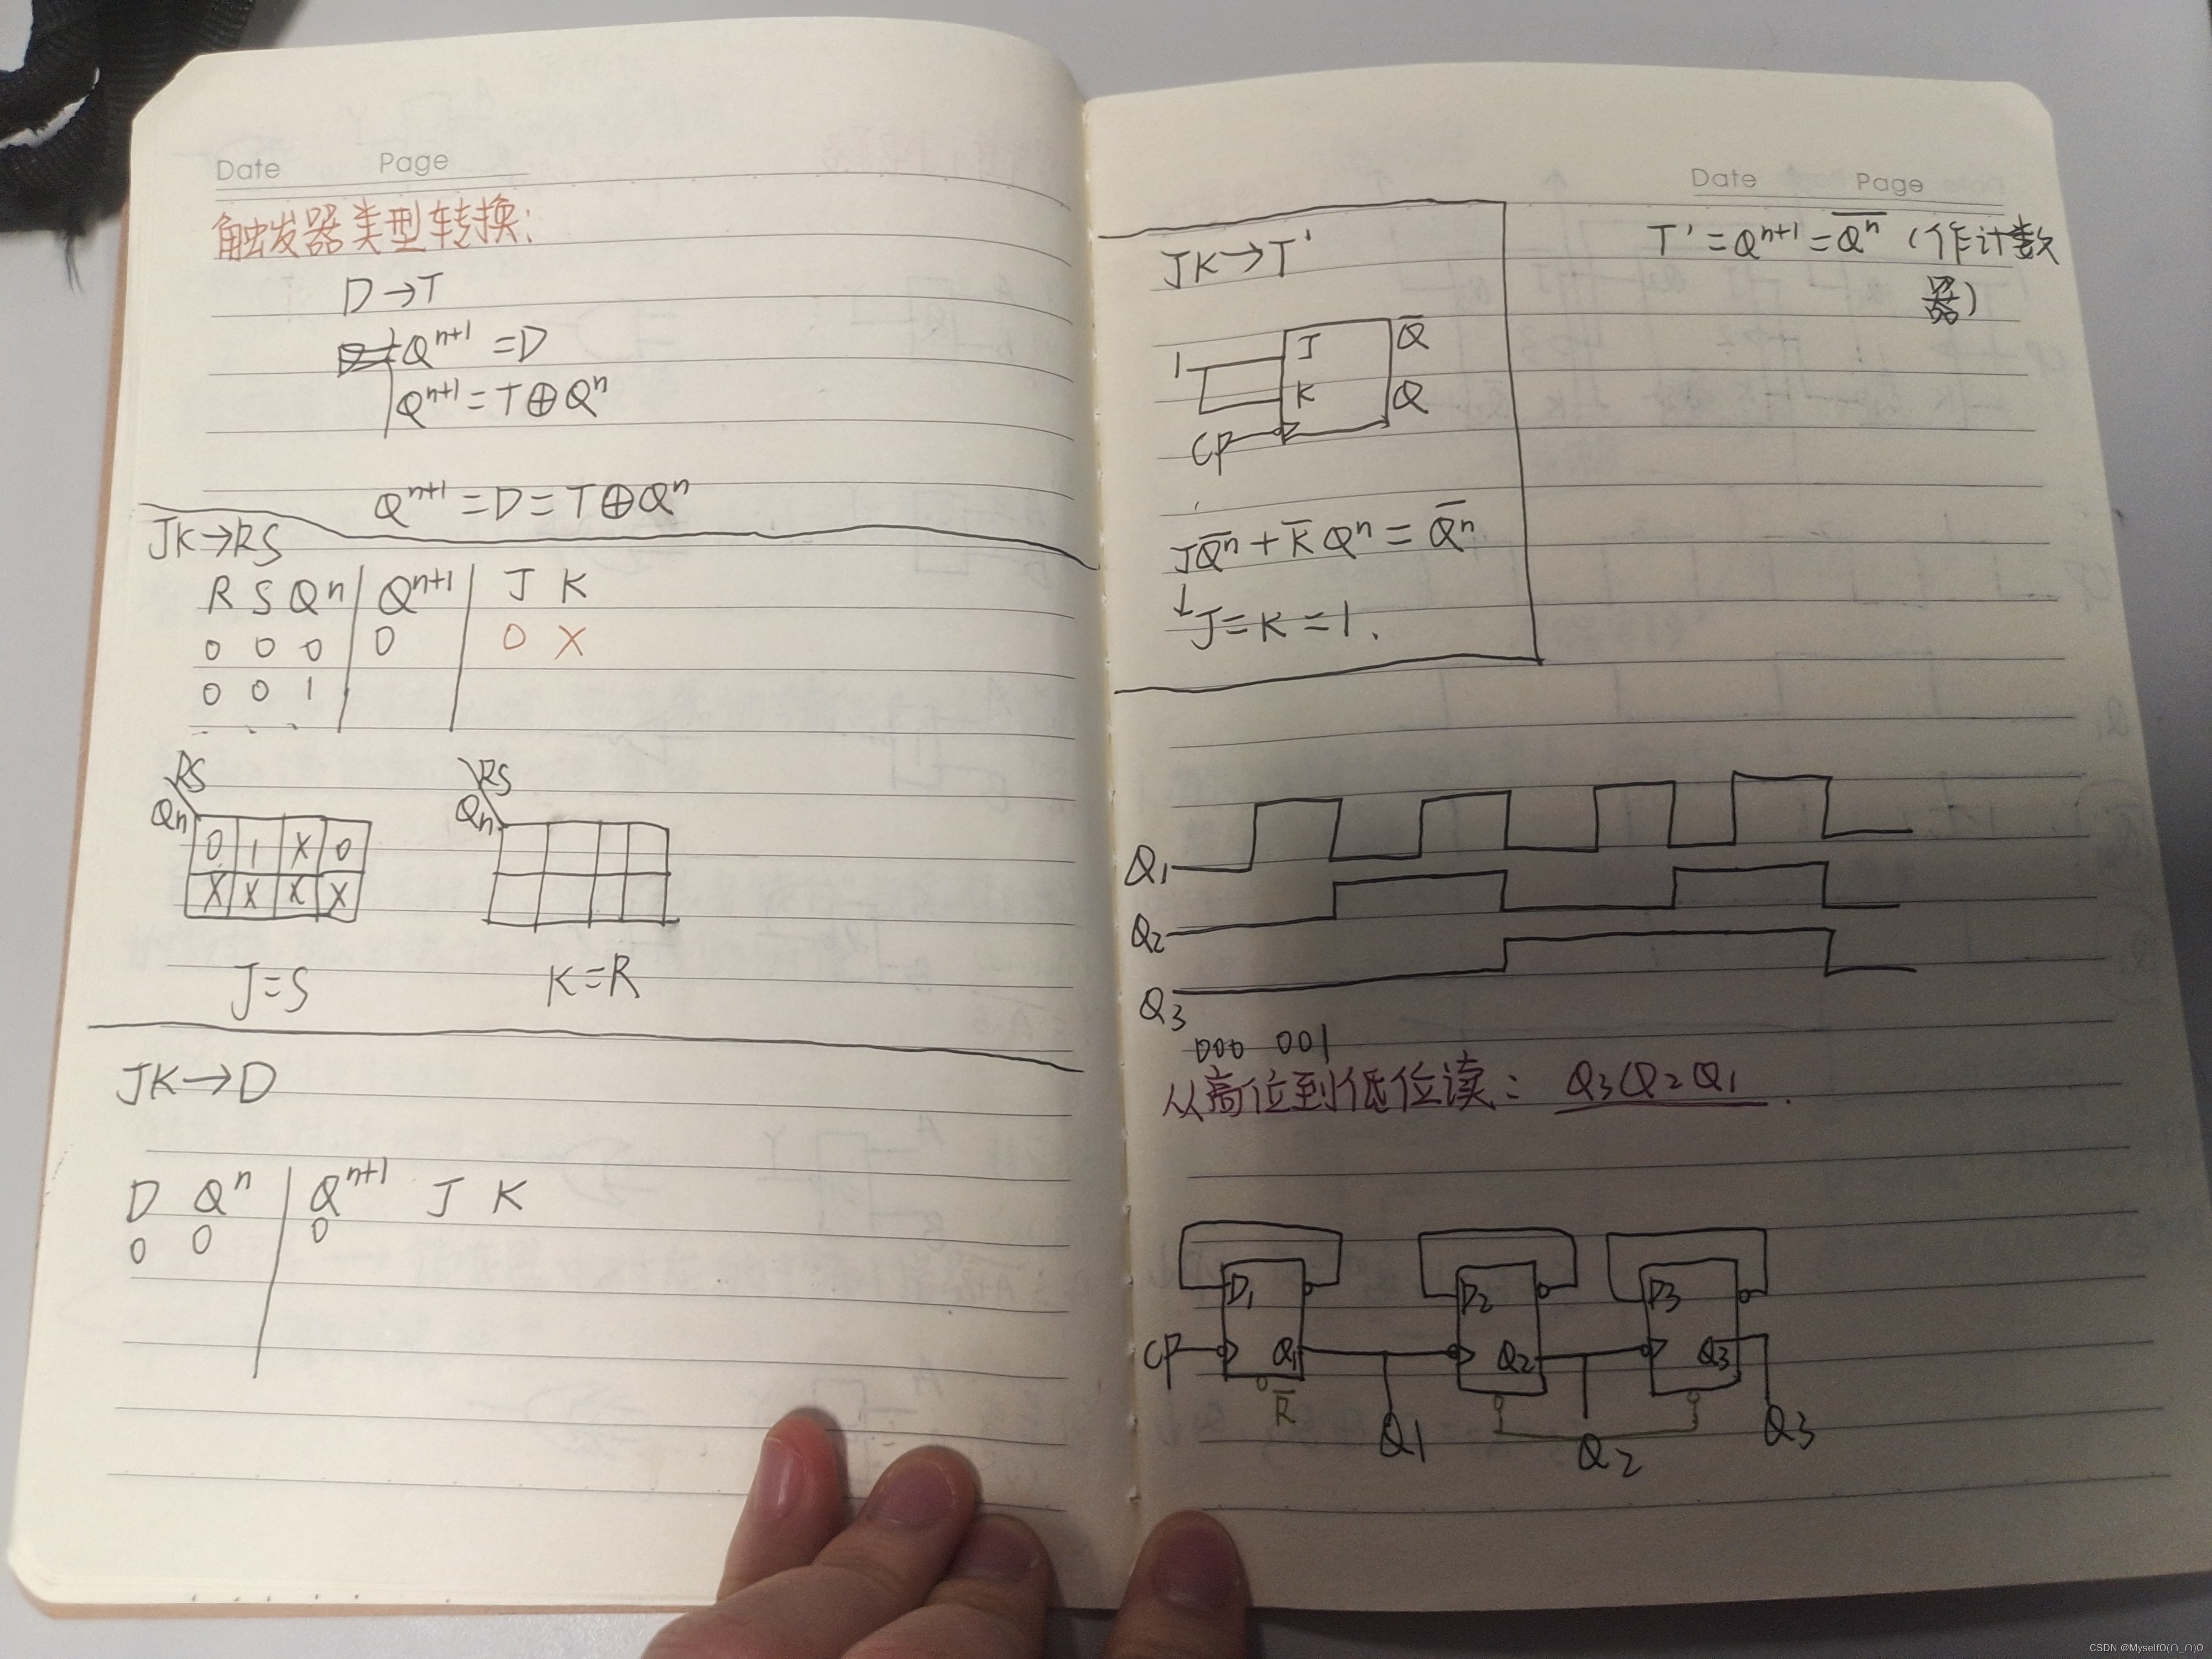 Date Page
触发器类型转换:
D→T
Qⁿ⁺¹ =D
Qⁿ⁺¹ = T⊕Qⁿ
Qⁿ⁺¹ = D = T⊕Qⁿ
JK→RS
R S Qⁿ Qⁿ⁺¹ J K
0 0 0 0 0 X
0 0 1
RS
Qn
0 1 X 0
X X X X
RS
Qn
J=S K=R
JK→D
D Qⁿ Qⁿ⁺¹ J K
0 0 0
Date Page
JK→T'
T' = Qⁿ⁺¹ = Q̅ⁿ (作计数
器)
1 J Q̅
K Q
CP
JQ̅ⁿ + K̅Qⁿ = Q̅ⁿ
↓
J=K=1.
Q1
Q2
Q3
000 001
从高位到低位读: Q3Q2Q1.
D1 D2 D3
CP Q1 Q2 Q3
R̅
Q1 Q2 Q3
CSDN @Myself0(∩_∩)0